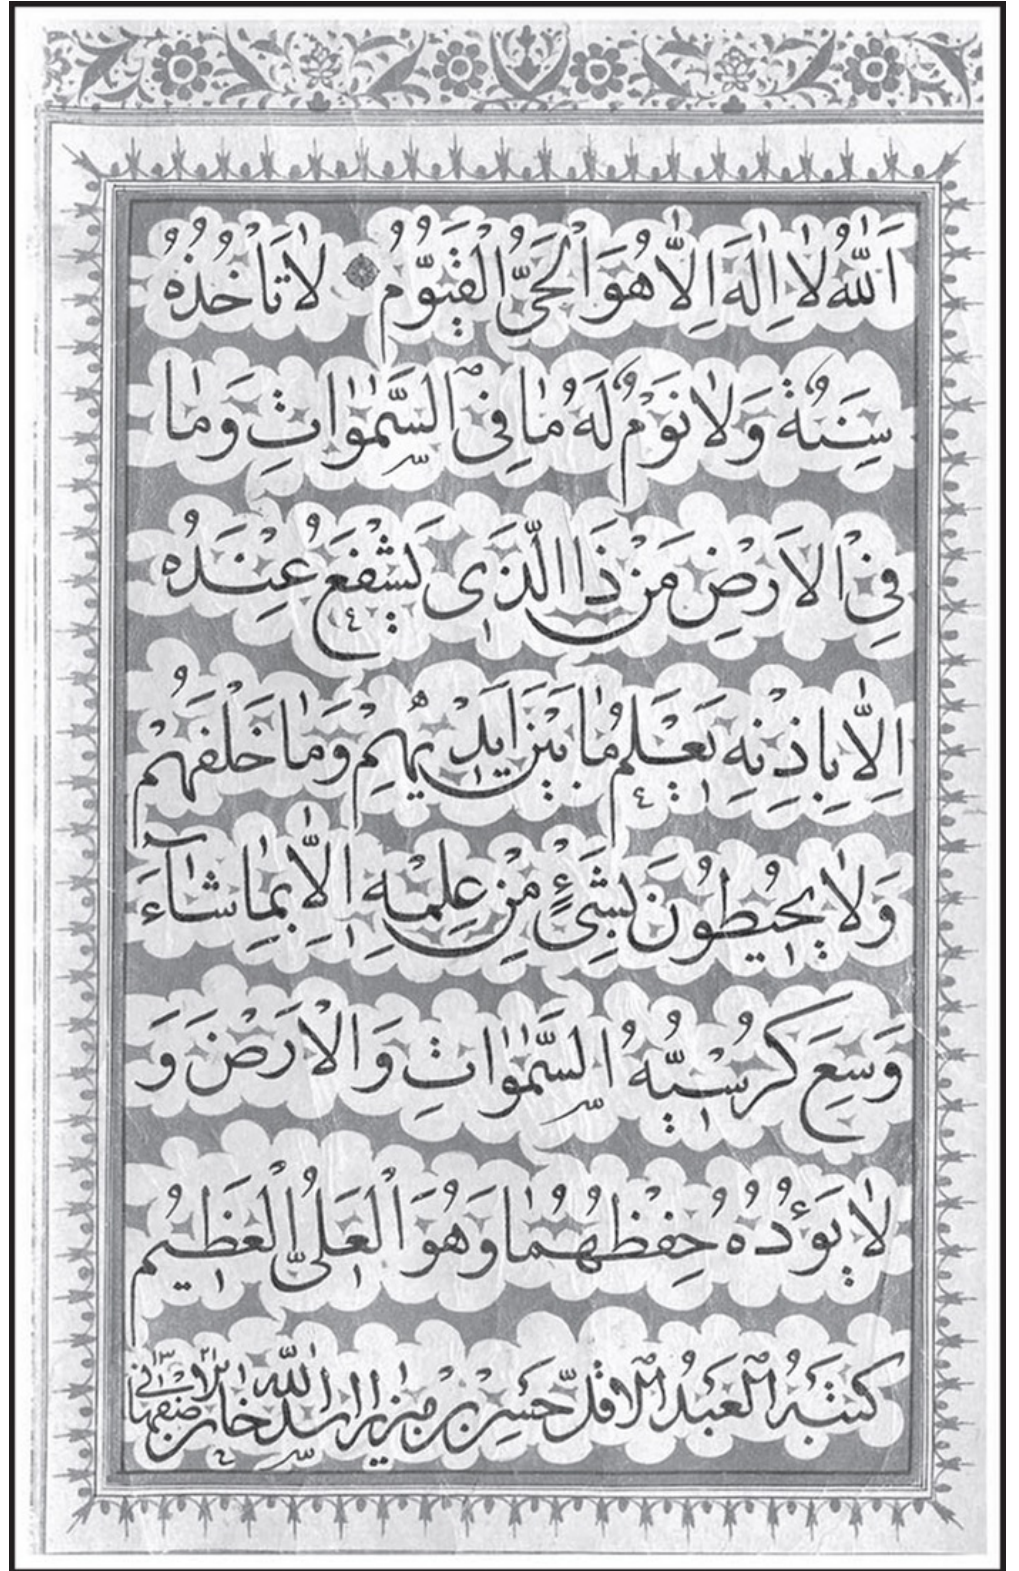 اَللّٰهُ لٰا اِلٰهَ اِلاّٰ هُوَ الْحَىُّ الْقَيُّومُ لٰا تَأْخُذُهُ
سِنَةٌ وَلٰا نَوْمٌ لَهُ مٰا فِى السَّمٰوٰاتِ وَمٰا
فِى الْاَرْضِ مَنْ ذَا الَّذٖى يَشْفَعُ عِنْدَهُ
اِلاّٰ بِاِذْنِهٖ يَعْلَمُ مٰا بَيْنَ اَيْدٖيهِمْ وَمٰا خَلْفَهُمْ
وَلٰا يُحٖيطُونَ بِشَىْءٍ مِنْ عِلْمِهٖ اِلاّٰ بِمٰا شٰاۤءَ
وَسِعَ كُرْسِيُّهُ السَّمٰوٰاتِ وَالْاَرْضَ وَ
لٰا يَؤُدُهُ حِفْظُهُمٰا وَهُوَ الْعَلِىُّ الْعَظٖيمُ
كَتَبَهُ الْعَبْدُ الْاَقَلّ حَسَن بْن ميرزا اسد اللّٰه خان الاصفهانى